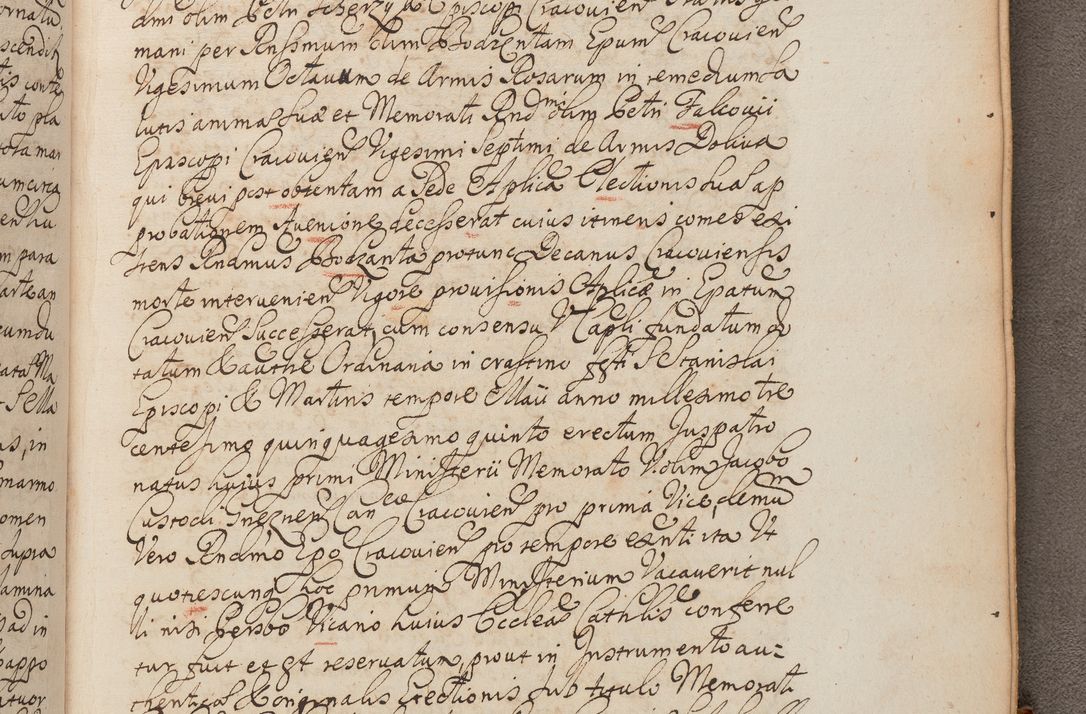 mani per Rnssmum olim Bodzentam Epum Cracovien
Vigesimum Octauum de Armis Rosarum in remedium sa
lutis animae suae et Memorati Rndmi olim Petri Falcovii
Episcopi Cracovien Vigesimi Septimi de Armis Doliva
qui brevi post obtentam a Sede Aplica Electionis suae ap
probationem Avenione decesserat cuius itineris comes exi
stens Rndmus Bodzanta protunc Decanus Cracoviensis
morte intervenien Vigore provisionis Aplicae in Epatum
Cracovien Successerat, cum consensu Capli fundatum do
tatum & authte Ordinaria in crastino festi S Stanislai
Episcopi & Martiris tempore Maii anno millesimo tre
centesimo quinquagesimo quinto erectum Juspatro
natus huius primi Ministerii Memorato olim Jacobo
Custodi Gneznen Can Cracovien pro prima Vice, demum
Vero Rndmo Epo Cracovien pro tempore exnti ita Vt
quotiescunq hoc primum Ministerium Vacaverit nul
li nisi Presbo Vicario huius Eccleae Cathlis conferre
tur fuit et est reservatum, prout in Instrumento au=
thentico & originalis Erectionis sub titulo Memorati